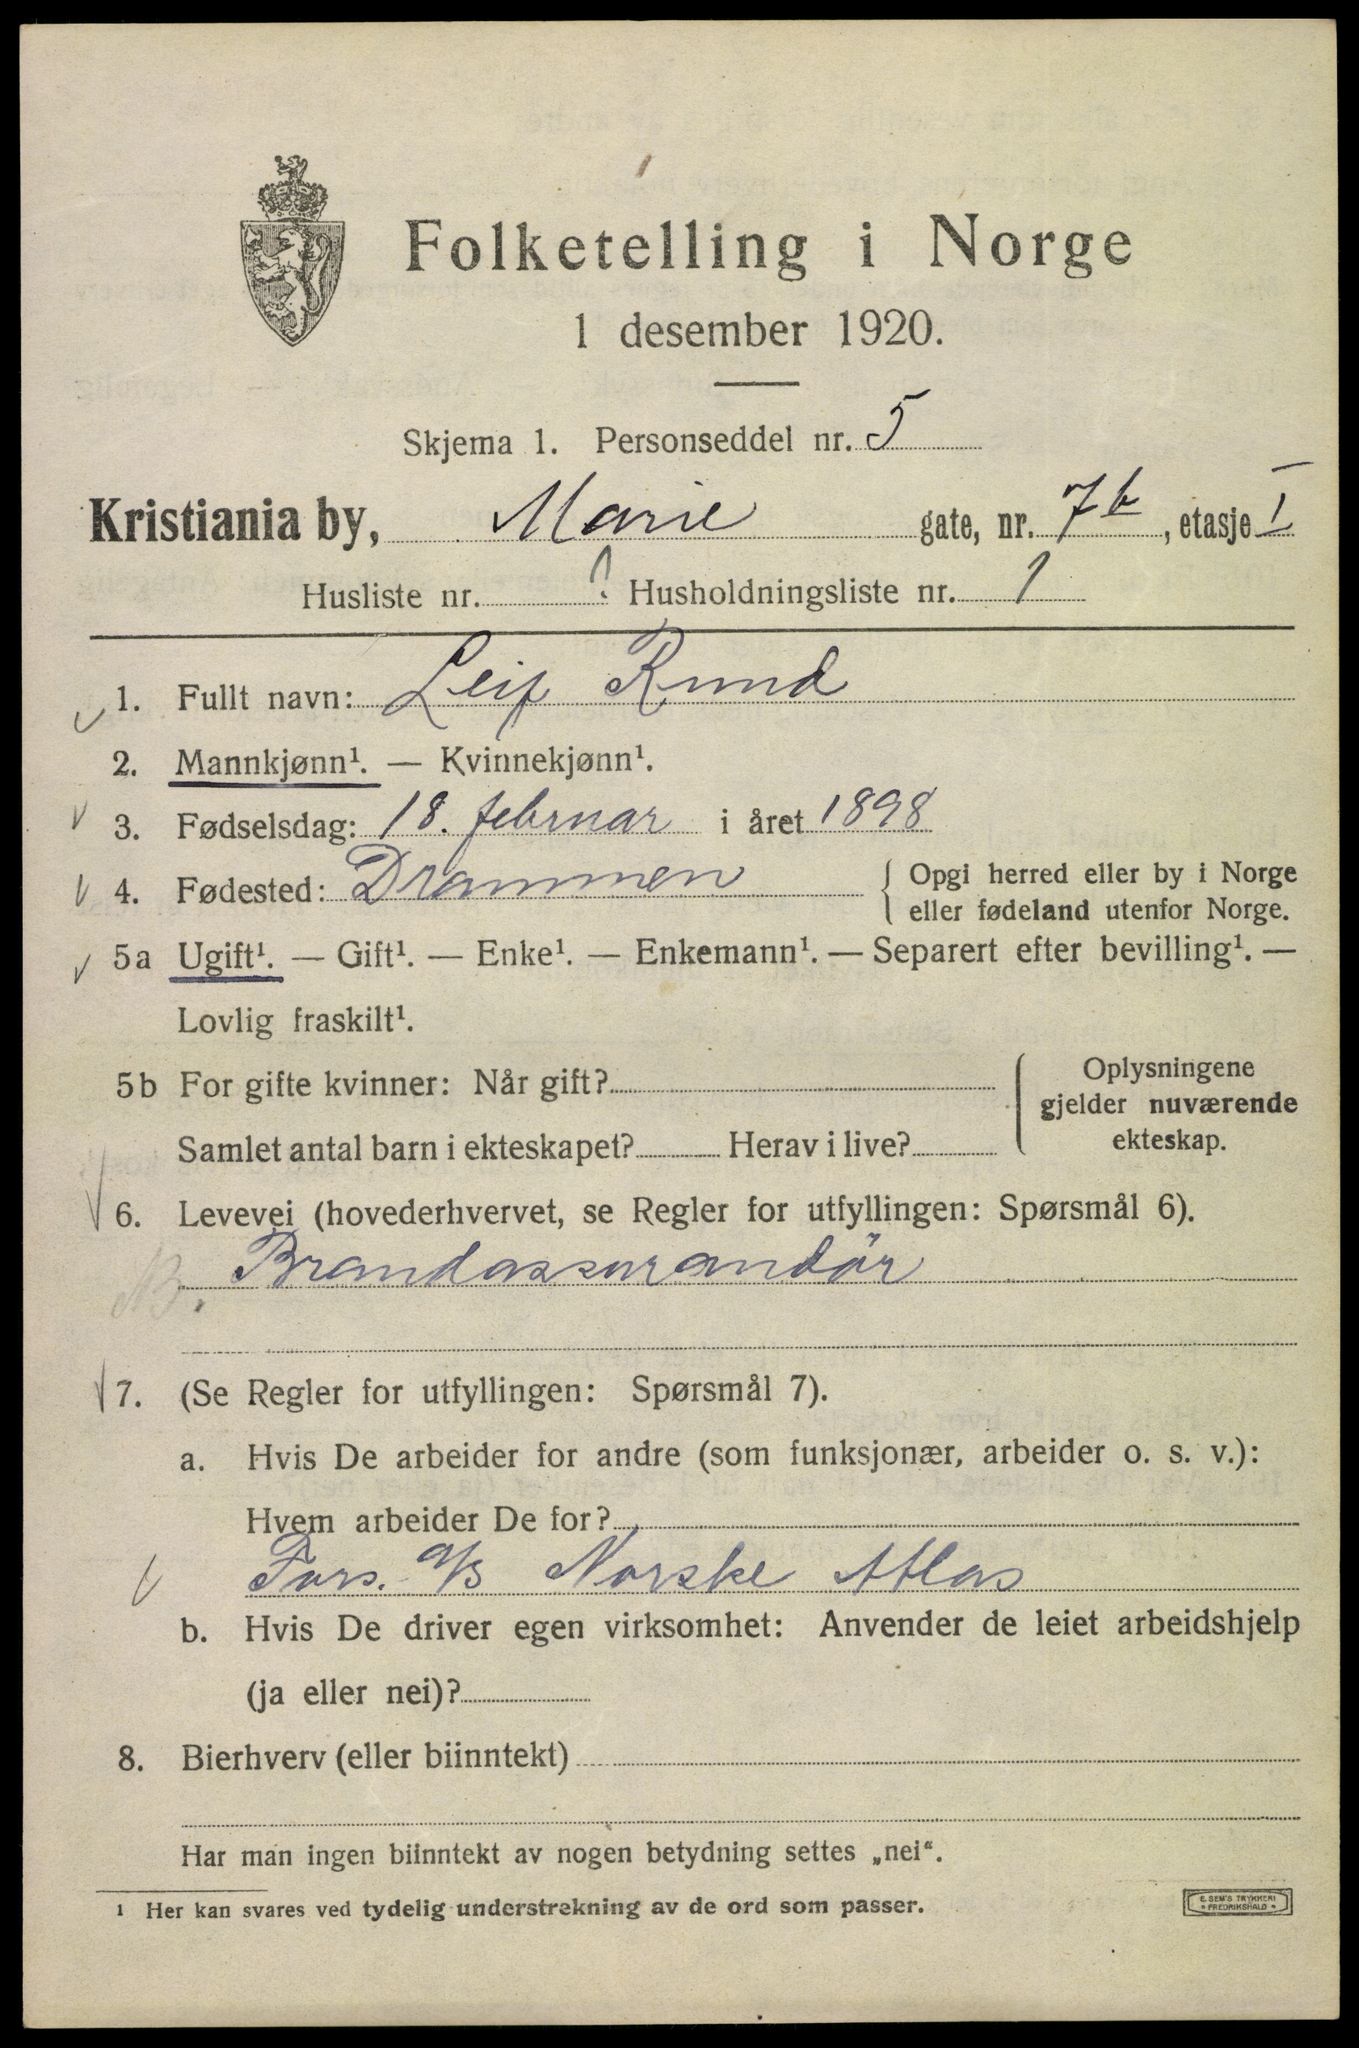 Folketelling i Norge
1 desember 1920.
Skjema 1. Personseddel nr. 5
Kristiania by, Marie gate, nr. 7b, etasje I
Husliste nr. Husholdningsliste nr. 1
1. Fullt navn: Leif Rund
2. Mannkjønn¹. — Kvinnekjønn¹.
3. Fødselsdag: 18. februar i året 1898
4. Fødested: Drammen { Opgi herred eller by i Norge
eller fødeland utenfor Norge.
5a Ugift¹. — Gift¹. — Enke¹. — Enkemann¹. — Separert efter bevilling¹. —
Lovlig fraskilt¹.
5b For gifte kvinner: Når gift? { Oplysningene
gjelder nuværende
ekteskap.
Samlet antal barn i ekteskapet? Herav i live?
6. Levevei (hovederhvervet, se Regler for utfyllingen: Spørsmål 6).
Brandassurandör
7. (Se Regler for utfyllingen: Spørsmål 7).
a. Hvis De arbeider for andre (som funksjonær, arbeider o. s. v.):
Hvem arbeider De for?
Fors. A/S Norske Atlas
b. Hvis De driver egen virksomhet: Anvender de leiet arbeidshjelp
(ja eller nei)?
8. Bierhverv (eller biinntekt)
Har man ingen biinntekt av nogen betydning settes „nei“.
¹ Her kan svares ved tydelig understrekning av de ord som passer.
E. SEM'S TRYKKERI
* FREDRIKSHALD *